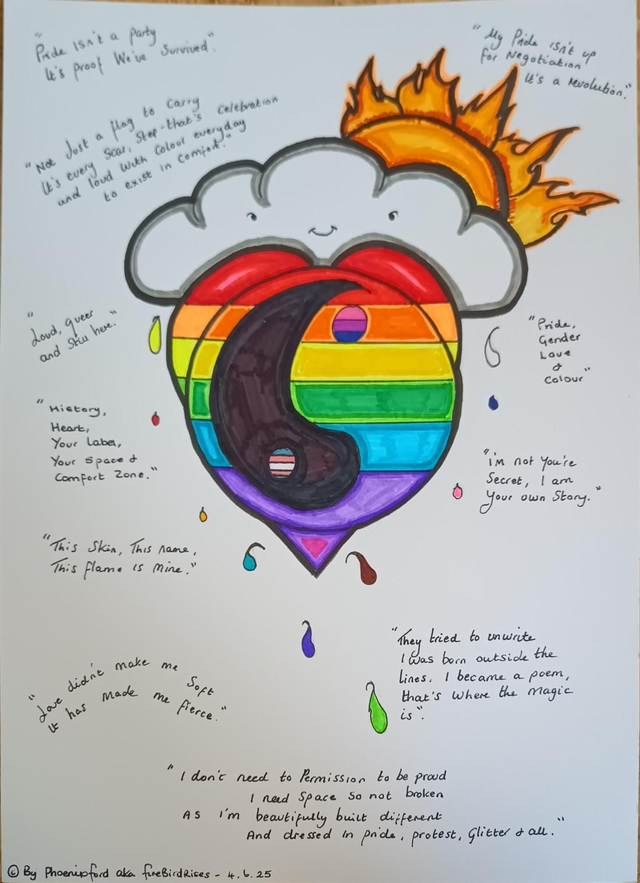 "Pride Isn't a Party
It's Proof We've Survived."
"My Pride isn't up
for Negotiation
It's a revolution."
"Not Just a flag to Carry
It's every Scar, Step-that's Celebration
and loud with Colour everyday
to exist in Comfort."
"Loud, queer
and Still here."
"Pride,
Gender
Love
&
Colour"
"History,
Heart,
Your Label,
Your Space &
Comfort Zone."
"I'm not You're
Secret, I am
Your own Story."
"This Skin, This name,
This flame is Mine."
"They tried to unwrite
I was born outside the
lines. I became a poem,
that's where the magic
is".
"Love didn't make me Soft
It has made me fierce."
"I don't need to Permission to be proud
I need Space So not broken
AS I'm beautifully built different
And dressed In pride, protest, Glitter & all."
© By Phoenixford aka fireBirdRises - 4.6.25